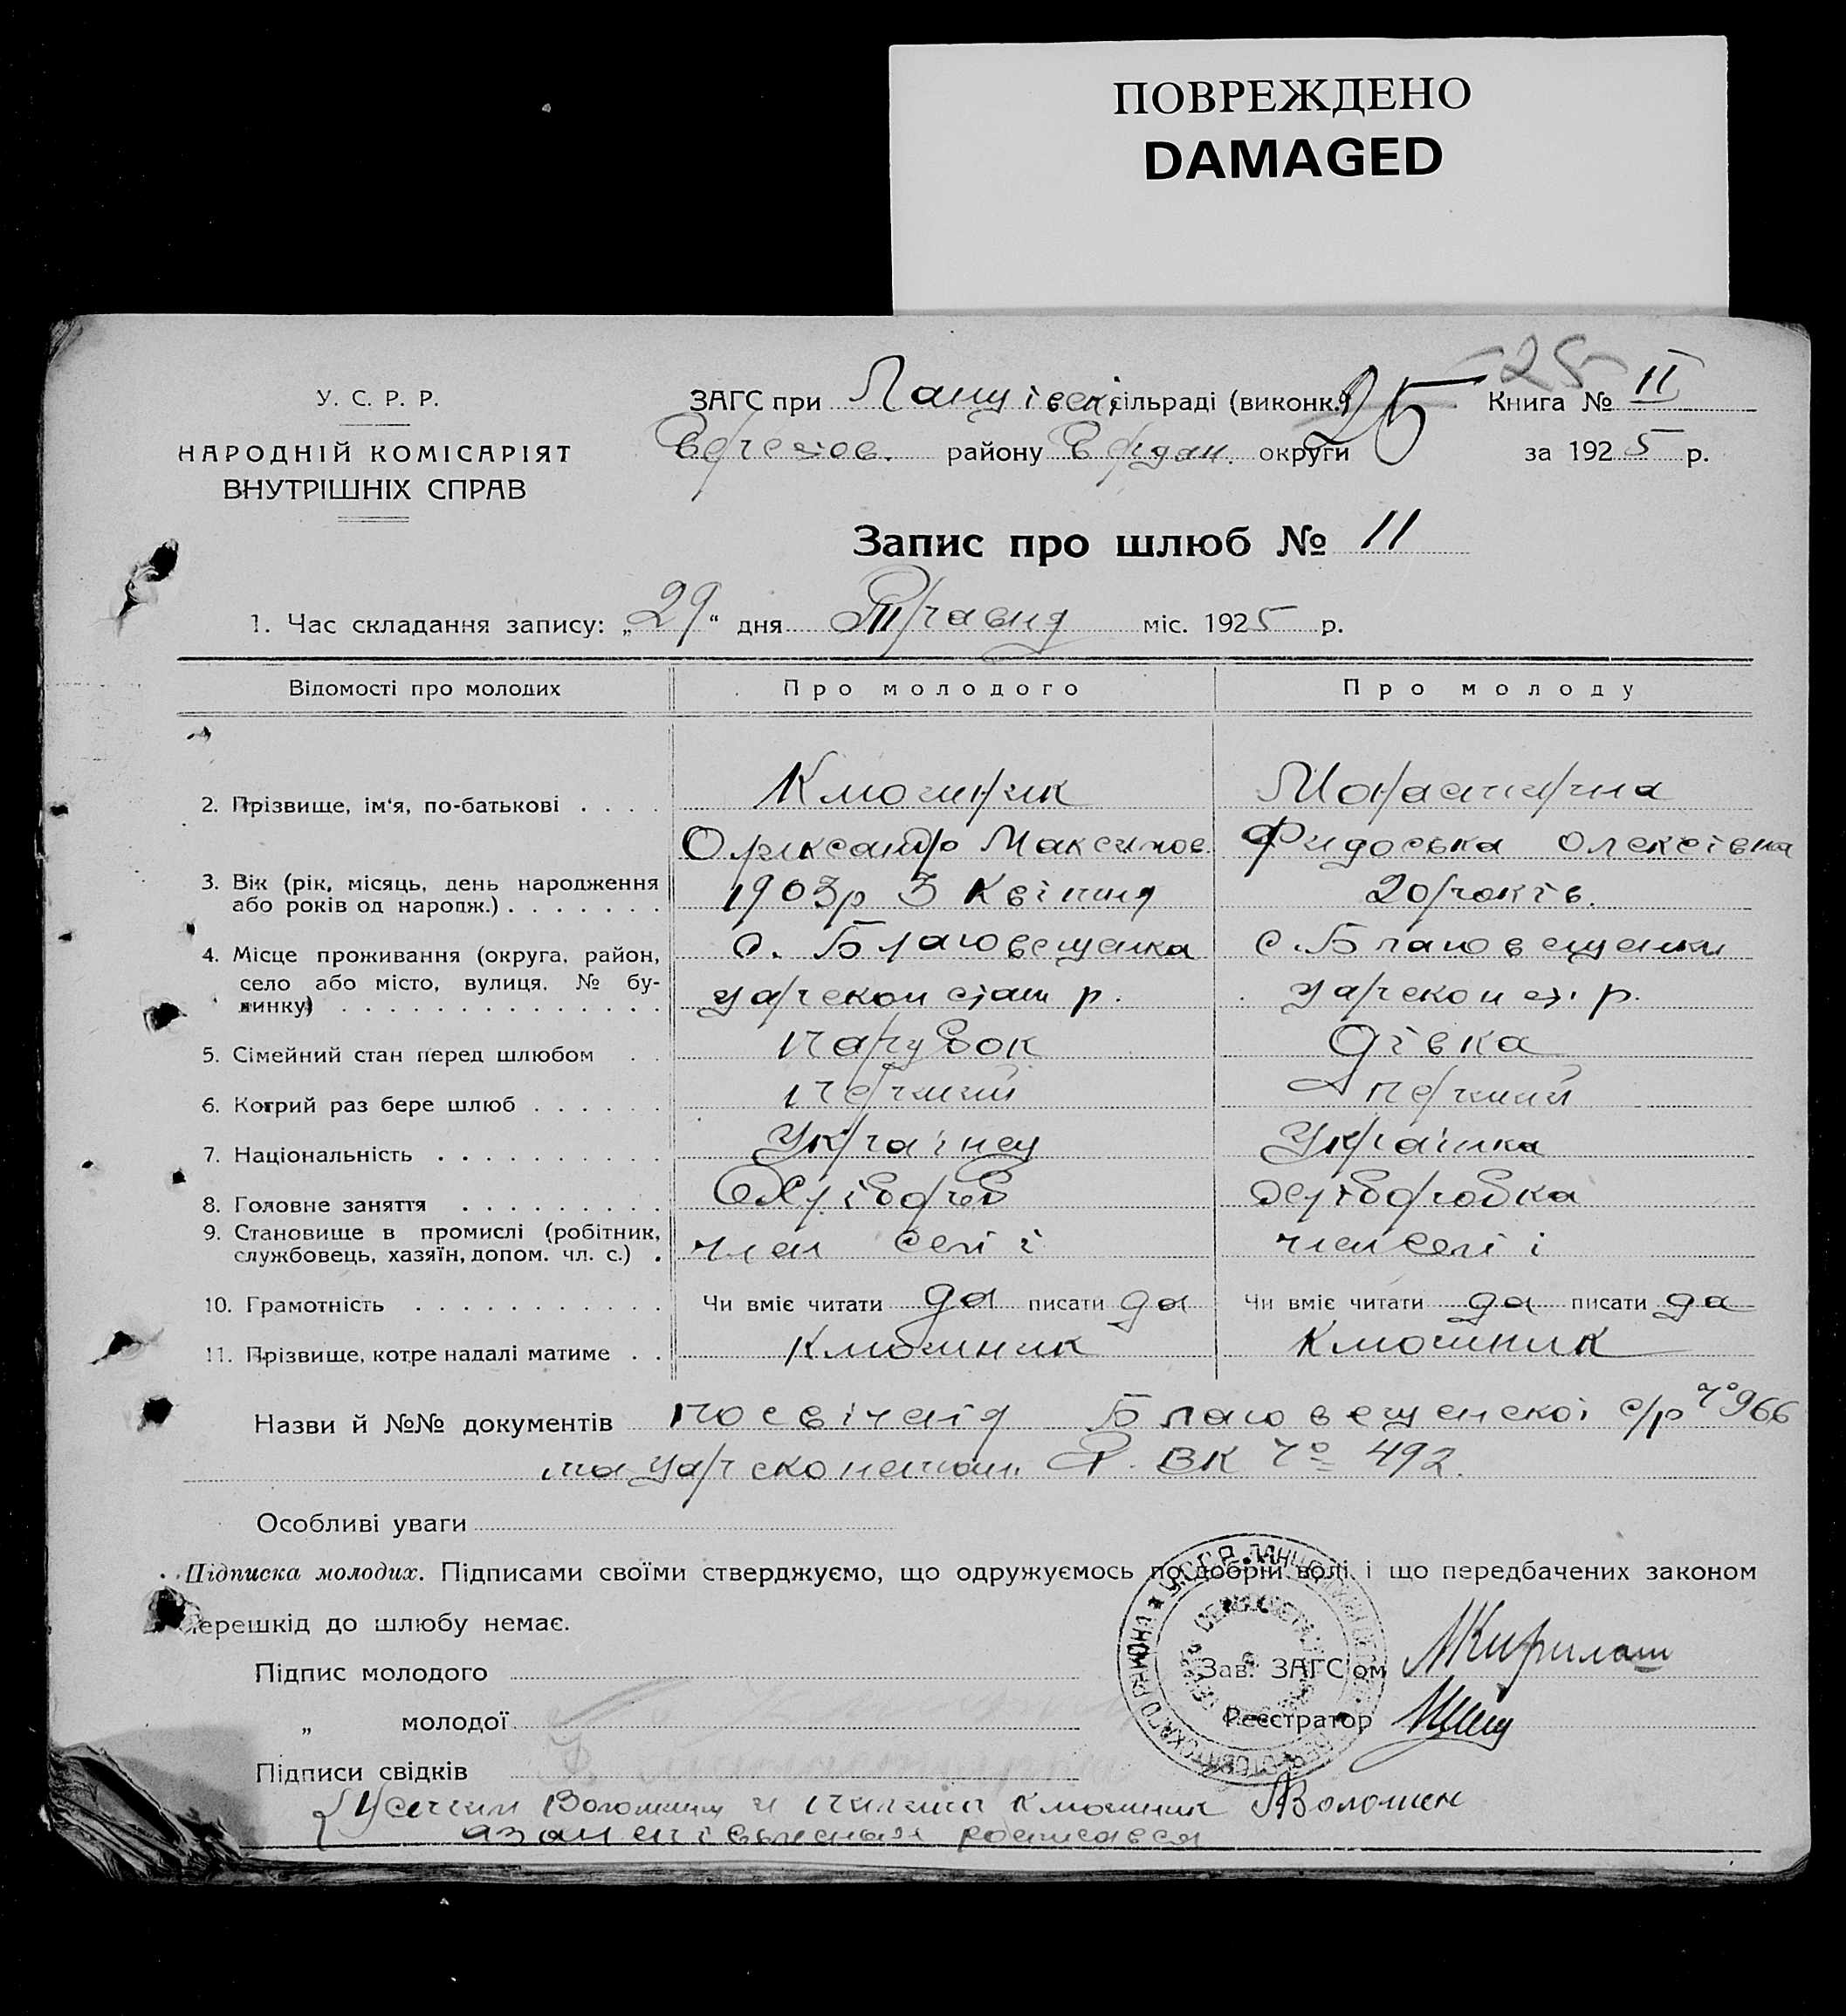 ПОВРЕЖДЕНО
DAMAGED
У. С. Р. Р.
НАРОДНІЙ КОМІСАРІЯТ
ВНУТРІШНІХ СПРАВ
ЗАГС при сільраді (виконк.) 25 Книга № II
25
району Бердян. округи за 1925 р.
Запис про шлюб № 11
1. Час складання запису: „29“ дня Травня міс. 1925 р.
Відомості про молодих Про молодого Про молоду
2. Прізвище, ім'я, по-батькові . . . . Клюшник Монастирна
Олександр Максимов. Фидоська Олексієвна
3. Вік (рік, місяць, день народження
або років од народж.) . . . . . . . 1903р 3 Квітня 20 років.
4. Місце проживання (округа, район, с. Благовещенка с. Благовещенки
село або місто, вулиця, № бу-
динку) . . . . . . . . . . . . . . Царекон стан р. Царекон ст. р.
5. Сімейний стан перед шлюбом . . Парубок Дівка
6. Котрий раз бере шлюб . . . . . . Перший Перший
7. Національність . . . . . . . . . . Українец Українка
8. Головне заняття . . . . . . . . . Хлібороб Хліборобка
9. Становище в промислі (робітник,
службовець, хазяїн, допом. чл. с.) . член семї член семї
10. Грамотність . . . . . . . . . . . Чи вміє читати да писати да Чи вміє читати да писати да
11. Прізвище, котре надалі матиме . . Клюшник Клюшник
Назви й №№ документів посвідчення Благовещенської с/р № 966
та Царекон Р.ВК № 492.
Особливі уваги
Підписка молодих. Підписами своїми стверджуємо, що одружуємось по добрій волі і що передбачених законом
перешкід до шлюбу немає.
Підпис молодого Зав. ЗАГС'ом
„ молодої Реєстратор
Підписи свідків
Волошин и Клюшник Волошин
росписався